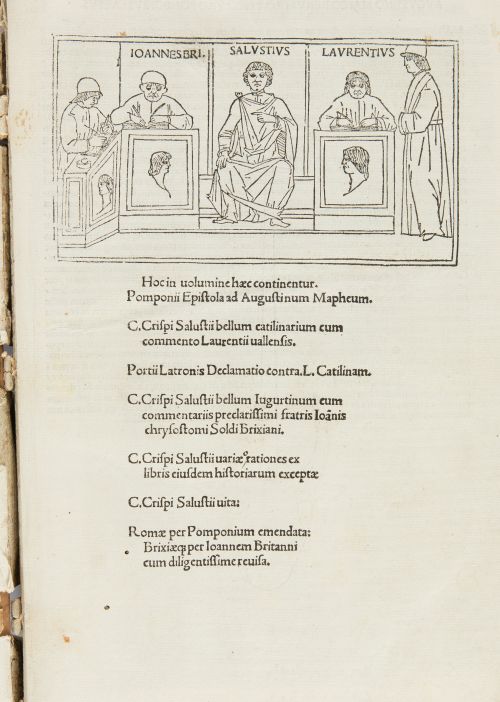 IOANNES BRI.
SALVSTIVS
LAVRENTIVS
Hoc in uolumine hæc continentur.
Pomponii Epistola ad Augustinum Mapheum.
C. Crispi Salustii bellum catilinarium cum
commento Laurentii uallensis.
Portii Latronis Declamatio contra. L. Catilinam.
C. Crispi Salustii bellum Iugurtinum cum
commentariis preclarissimi fratris Ioānis
chrysostomi Soldi Brixiani.
C. Crispi Salustii uariæ orationes ex
libris eiusdem historiarum exceptæ
C. Crispi Salustii uita:
Romæ per Pomponium emendata:
Brixiæq; per Ioannem Britanni
cum diligentissime reuisa.